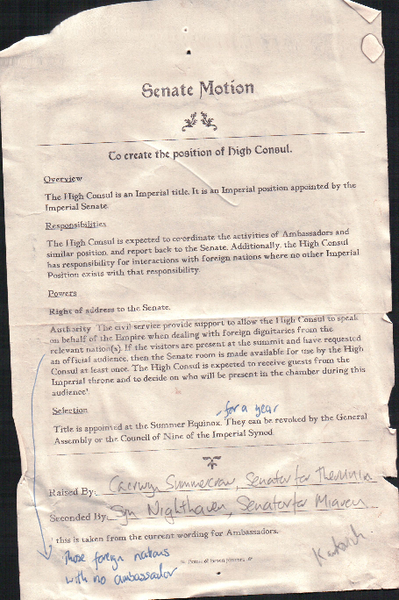 Senate Motion
To create the position of High Consul.
Overview
The High Consul is an Imperial title. It is an Imperial position appointed by the
Imperial Senate.
Responsibilities
The High Consul is expected to co-ordinate the activities of Ambassadors and
similar position, and report back to the Senate. Additionally, the High Consul
has responsibility for interactions with foreign nations where no other Imperial
Position exists with that responsibility.
Powers
Right of address to the Senate.
Authority The civil service provide support to allow the High Consul to speak
on behalf of the Empire when dealing with foreign dignitaries from the
relevant nation(s). If the visitors are present at the summit and have requested
an official audience, then the Senate room is made available for use by the High
Consul at least once. The High Consul is expected to receive guests from the
Imperial throne and to decide on who will be present in the chamber during this
audience¹
Selection
- for a year
Title is appointed at the Summer Equinox. They can be revoked by the General
Assembly or the Council of Nine of the Imperial Synod.
Raised By: Caerwyn Summercrow, Senator for Therunin
Seconded By: Nighthaven, Senator for Miaren
¹ this is taken from the current wording for Ambassadors.
Those foreign nations
with no ambassador